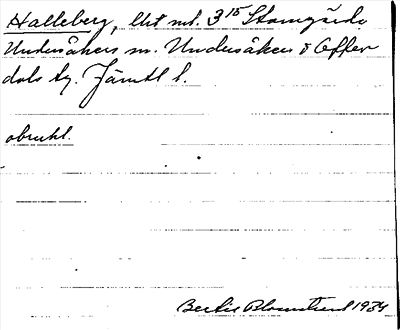 Halleberg, lht nt. 3 15 Stamgärde
Undersåkers sn. Undersåkers o Offer
dals tg. Jämtl l.
obrukl.
Bertil Blomstrand 1934